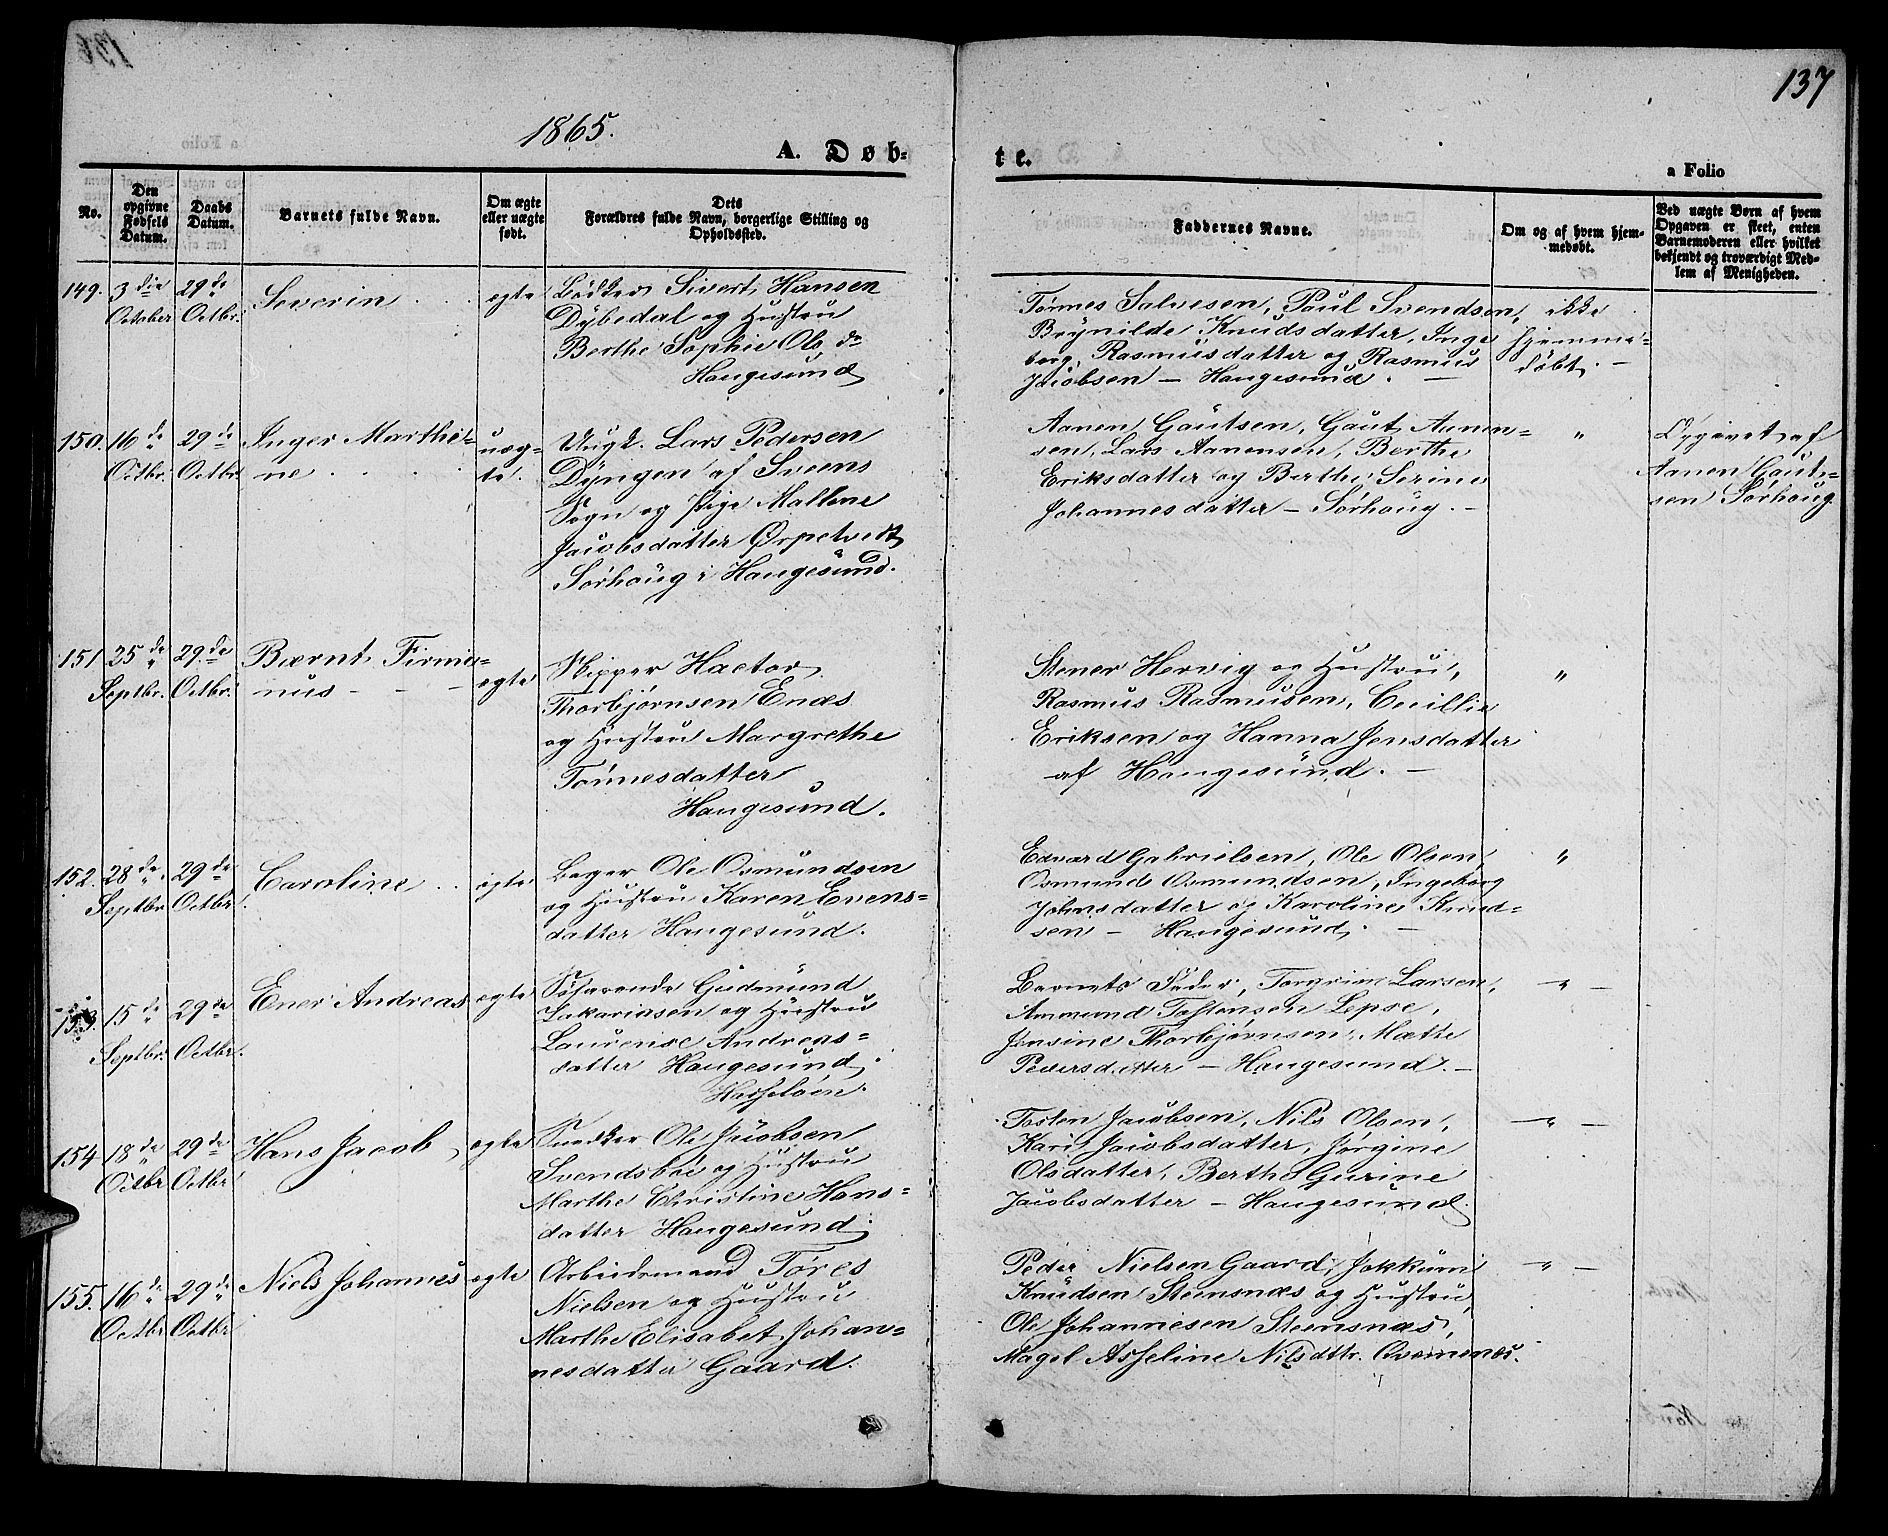 137
1865.
A. Døb-
te.
a Folio
No.
Den opgivne Fødsels Datum.
Daabs Datum.
Barnets fulde Navn.
Om ægte eller uægte født.
Dets Forældres fulde Navn, borgerlige Stilling og Opholdssted.
Faddernes Navne.
Om og af hvem hjem-
medøbt.
Ved uægte Børn af hvem
Opgaven er skeet, enten
Barnemoderen eller hvilket
bekjendt og troværdigt Med-
lem af Menigheden.
149. 3die October 29de Octbr. Severin egte
Bødker Sivert Hansen
Dybedal og Hustru
Berthe Sophie Ols dr
Haugesund
Tørnes Salvesen, Paul Svendsen,
Brynilde Knudsdatter, Inge
borg Rasmusdatter og Rasmus
Jacobsen — Haugesund. —
ikke
hjemme-
døbt. —
150. 16de Octbr. 29de Octbr. Inger Marthe-
ne
uæg-
te.
Ungk. Lars Pedersen
Dyngen af Sveens
Sogn og Pige Mallene
Jacobsdatter Ørpetvedt
Sørhoug i Haugesund.
Aanen Gautsen, Gaut Aanen-
sen, Lars Aanensen, Berthe
Eriksdatter og Berthe Serine
Johannesdatter — Sørhoug. —
"
Opgivet af
Aanen Gaut-
sen Sørhoug
151 25de Septbr. 29de Octbr. Bærnt Firmi-
nus - - -
egte
Skipper Hactor
Thorbjørnsen Enæs
og Hustru Margrethe
Tønnesdatter
Haugesund.
Stener Hervig og Hustru,
Rasmus Rasmusen, Cecillie
Eriksen og Hanna Jensdatter
af Haugesund. —
"
152. 28de Septbr 29de Octbr. Caroline egte
Borger Ole Osmundsen
og Hustru Karen Evens-
datter Haugesund.
Edvard Gabrielsen, Ole Olsen
Osmund Osmundsen, Ingeborg
Johnsdatter og Karoline Knud-
sen — Haugesund. —
"
153. 15de Septbr. 29de Octbr. Ener Andreas egte
Søfarende Gudmund
Zakariasen og Hustru
Laurense Andreas-
datter Haugesund.
Hasseløen.
Barnets Fader, Torgrim Larsen,
Ammund Tostensen Lepsø,
Jensine Thorbjørnsen, Mætte
Pedersdatter — Haugesund. —
" —
154 18de Octbr 29de Octbr Hans Jacob egte
Snedker Ole Jacobsen
Svendsbøe og Hustru
Marthe Christine Hans-
datter Haugesund.
Tosten Jacobsen, Nils Olsen,
Kari Jacobsdatter, Jørgine
Olsdatter, Berthe Gurine
Jacobsdatter — Haugesund.
— " —
155. 16de Octbr 29de Octbr Niels Johannes egte
Arbeidsmand Tøres
Nielsen og Hustru
Marthe Elisabet Johan-
nesdatter Gaard.
Peder Nielsen Gaard, Jokkum
Knudsen Steensnæs og Hustru,
Ole Johannesen Steensnæs,
Magel Asseline Nilsdtr.
" —